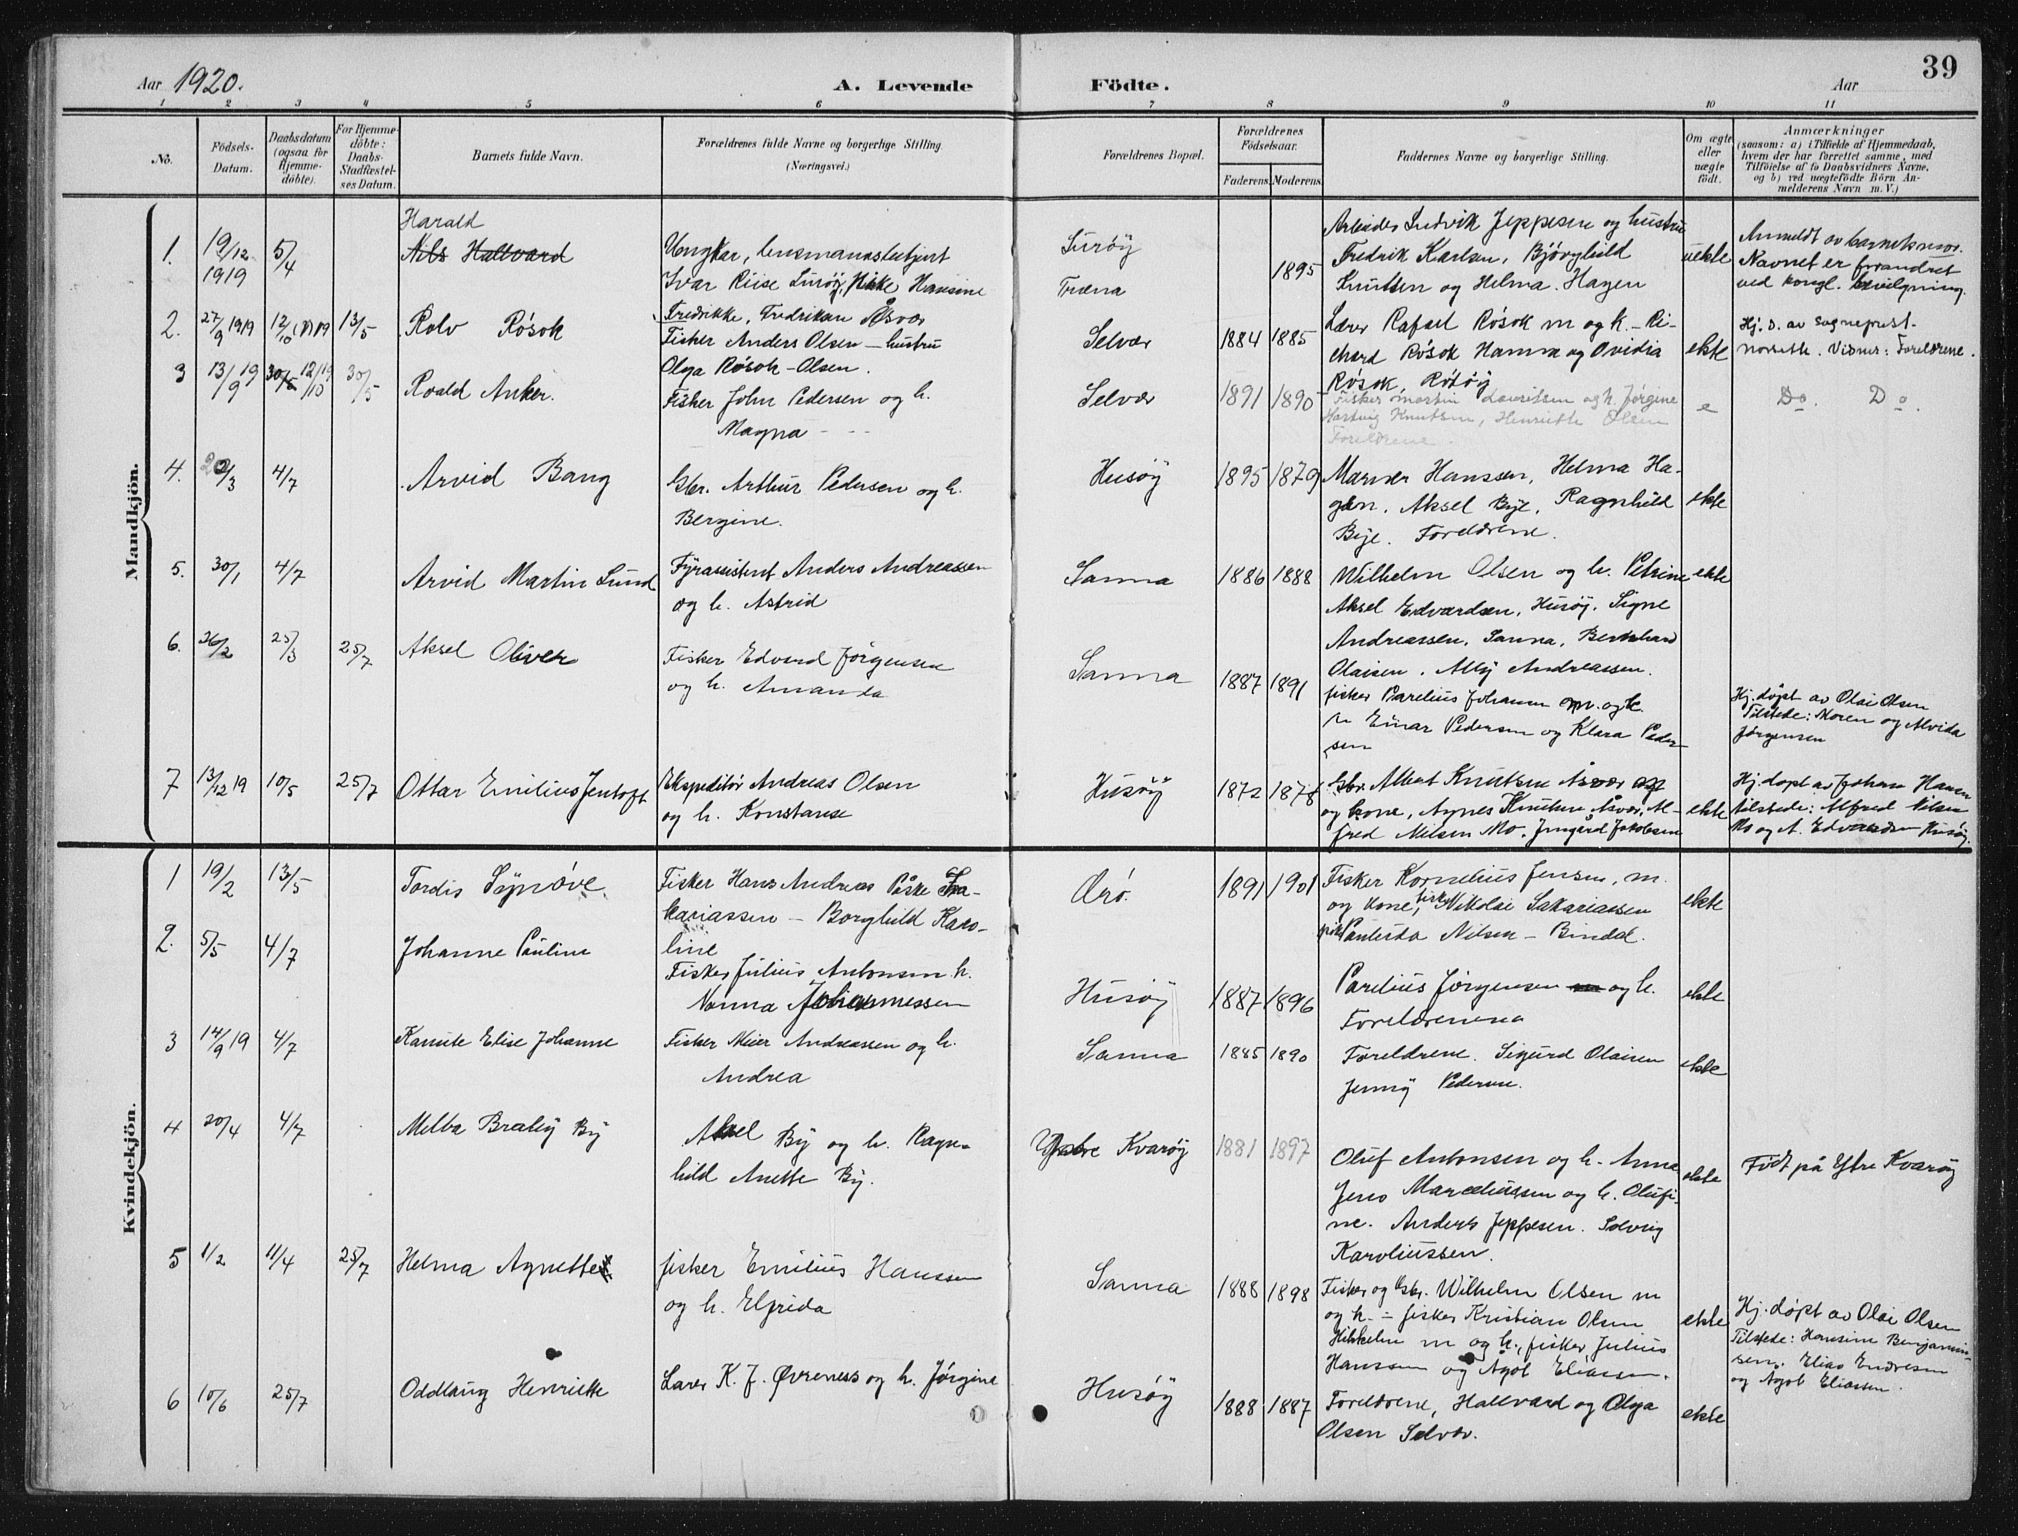 39
Aar 1920. A. Levende Födte. Aar
1 2 3 4 5 6 7 8 9 10 11
No.
Födsels-
Datum.
Daabsdatum
(ogsaa for
Hjemme-
döbte).
For Hjemme-
döbte:
Daabs-
Stadfæstel-
ses Datum.
Barnets fulde Navn.
Forældrenes fulde Navne og borgerlige Stilling
(Næringsvei.)
Forældrenes Bopæl.
Forældrenes
Födselsaar.
Faderens. Moderens.
Faddernes Navne og borgerlige Stilling.
Om ægte
eller
uægte
födt.
Anmærkninger
(saasom: a) i Tilfælde af Hjemmedaab,
hvem der har forrettet samme, med
Tilföielse af to Daabsvidners Navne,
og b) ved uægtefödte Börn An-
melderens Navn m. V.)
Mandkjön.
1. 19/12 1919 5/4
Harald
Nils Hallvard
Ungkar, lensmannsbetjent
Ivar Riise Lurøy, Pike Hansine
Fredrikke, Fredriksen Åsvær
Lurøy
Træna
1895
Arbeider Ludvik Jeppesen og hustru
Fredrik Karlsen, Bjøvghild
Knutsen og Helma Hagen
uekte
Anmeldt av barnets mor.
Navnet er forandret
ved kongl. bevilgning.
2. 27/9 1919 12/10 1919 13/5
Rolv Røsok
Fisker Anders Olsen – hustru
Olga Røsok-Olsen.
Selvær
1884 1885
Lærer Rafael Røsok m og k. – Ri-
chard Røsok Hamna og Ovidia
Røsok, Røtøy
ekte
Hj. D. av Sogneprest
Vidner: Foreldrene.
3 13/9 19 30/5 12/10 19 30/5
Roald Anker.
Fisker John Pedersen og h.
Magna
Selvær
1891 1890
Fisker Martin Lauritsen og h. Jørgine
Hartvig Knutsen, Henriette Olsen
Foreldrene.
e
Do. Do.
4. 20/3 4/7
Arvid Bang
Gbr. Arthur Pedersen og h.
Bergine.
Husøy
1895 1879
Marner Hanssen, Helma Ha-
gen, Aksel Bye, Ragnhild
Bye. Foreldrene.
ekte
5. 30/1 4/7
Arvid Martin Lund
Fyrassistent Anders Andreassen
og h. Astrid
Sanna
1886 1888
Wilhelm Olsen og h. Petrine
Aksel Edvardsen, Husøy. Signe
Andreassen, Sanna, Bernhard
Olaisen, Ally Andreassen.
ekte
6. 26/2 25/3 25/7
Aksel Oliver
Fisker Edvard Jørgensen
og h. Amanda
Sanna
1887 1891
fisker Parelius Johansen m. og k.
Einar Pedersen og Klara Peder-
sen
Hj. døpt av Olai Olsen
Tilstede: Moren og Alvida
Jørgensen
7 13/12 19 10/5 25/7
Ottar Emilius Jentoft
Ekspeditør Andreas Olsen
og h. Konstanse
Husøy
1872 1878
Gbr. Albert Knutsen Åsvær
og kone, Agnes Knutsen Åsvær, Al-
fred Nilsen Mo, Jrngård Jakobsen
ekte
Hj. døpt av Johan Hansen
tilstede: Alfred Nilsen
Mo og A. Edvardsen Husøy.
Kvindekjön.
1 19/2 13/5
Tordis Synøve.
Fisker Hans Andreas Påske Sa-
kariassen – Borghild Karo-
line
Ørø.
1891 1901
Fisker Kornelius Jensen, m.
og kone, fisker Nikolai Sakariassen
pike Paulerda Nilsen – Bindal.
ekte
2. 5/5 4/7
Johanne Pauline
Fisker Julius Antonsen h.
Nanna Johannessen
Husøy
1887 1896
Parelius Jørgensen og h.
Foreldrenena
ekte
3 14/9 19 4/7
Kamite Elise Johanne
Fisker Meier Andreassen og h.
Andrea
Sanna
1885 1890
Foreldrene. Sigurd Olaisen
Jenny Pedersen.
ekte
4 20/4 4/7
Melba Braley By
Aksel By og h. Ragn-
hild Anette By.
Ytre Kvarøy
1881 1897
Oluf Antonsen og h. Anna
Jens Marceliussen og h. Olufi-
ne. Anders Jeppesen. Solveig
Karoliussen.
ekte
Født på Ytre Kvarøy
5 1/2 11/4 25/7
Helma Agnette
fisker Emilius Hanssen
og h. Elfrida
Sanna
1888 1898
Fisker og Gbr. Wilhelm Olsen m
og h. – fisker Kristian Olsen
m og h, fisker Julius
Hanssen og Agot Eliassen.
ekte
Hj. døpt av Olai Olsen
Tilstede: Hansine Benjamin-
sen, Elias Endresen
og Agot Eliassen.
6 10/6 25/7
Oddlaug Henriette
Lærer K. J. Øvreness og h. Jørgine
Husøy
1888 1887
Foreldrene, Hallvard og Olga
Olsen Selvær.
ekte